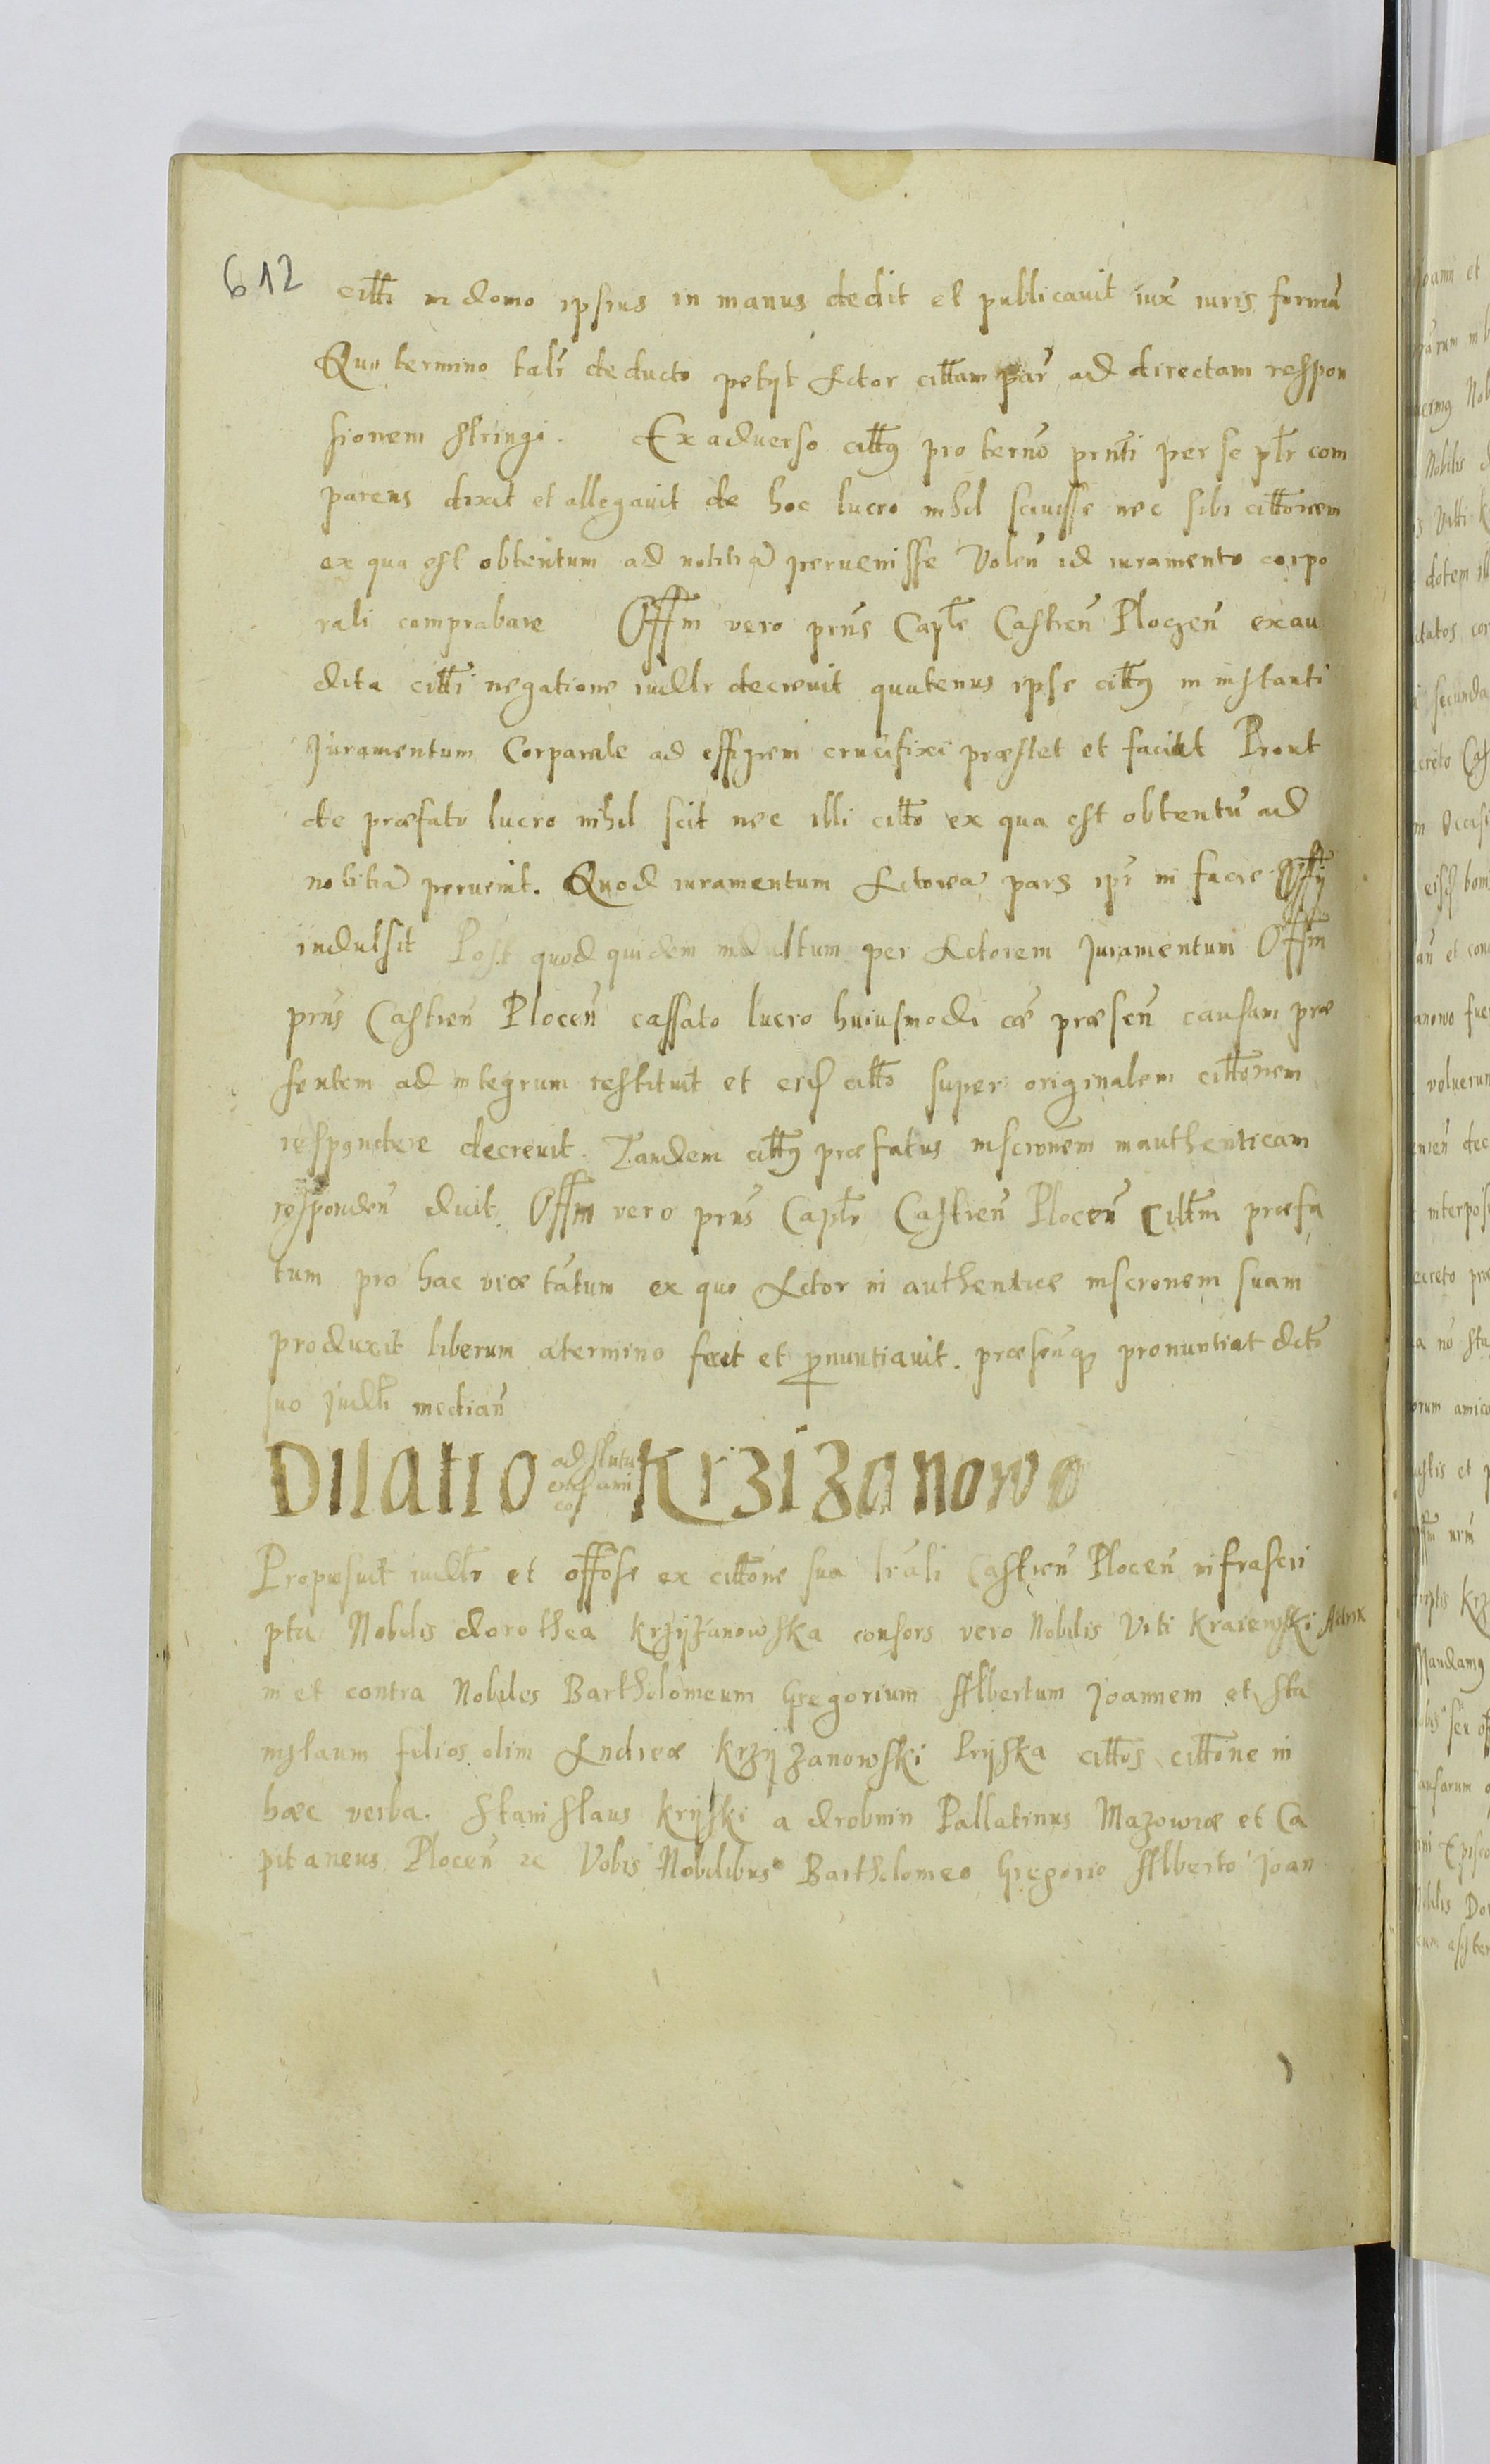 612
citti in domo ipsius in manus dedit et publicavit iux̃ iuris formã
Quo termino tali deducto petyt Actor cittam par̃ ad directam respon
sionem stringi. Ex adverso cittꝰ pro termõ prñti per se pl̃r com
parens dixit et allegavit de hoc lucro nihil scivisse nec sibi cittonem
ex qua est obtentum ad notitiã pervenisse Volen̄ id iuramento corpo
rali comprabare Offm vero prn̄s Capl̃e Castren̄ Ploczen̄ exau
dita citti negatione iudllr decrevit quatenus ipse cittꝰ in instanti
Juramentum Corporale ad effigiem crucifixi præstet et faciat Prout
de præfato lucro nihil scit nec illi citto ex qua est obtentũ ad
notitiã pervenit. Quod iuramentum Actorea pars ipi in facie Offii
indulsit Post quod quidem indultum per Actorem Juramentum Offm
prn̄s Castren̄ Plocen̄ cassato lucro huiusmodi cã præsen̄ causam præ
sentem ad integrum restituit et eid citto super originalem cittonem
respondere decrevit. Tandem cittꝰ præfatus inscronem inauthenticam
responden̄ dicit. Offm vero prn̄s Capl̃e Castren̄ Plocen̄ Cittm præfa
tum pro hac vice tãtum ex quo Actor in authentice inscronem suam
produxit liberum a termino fecit et ꝓnuntiavit. præsenꝗ pronuntiat dcto
suo Judlli median̄
Dilatio ad Krzizanowo
Proposuit iudllr et offose ex cittone sua lr̃ali Castren̄ Plocen̄ infrascri
pta Nobilis dorothea Krzyzanowska consors vero Nobilis Viti Kraiewski Actrix
in et contra Nobiles Bartholomeum Gregorium Albertum Joannem et Sta
nislaum filios olim Andreæ Krzyzanowski Pryska cittos cittone in
hæc verba. Stanislaus Kryski a drobnin Pallatinus Mazowiæ et Ca
pitaneus Plocen̄ ꝛc Vobis Nobilibus Bartholomeo Gregorio Alberto Joan